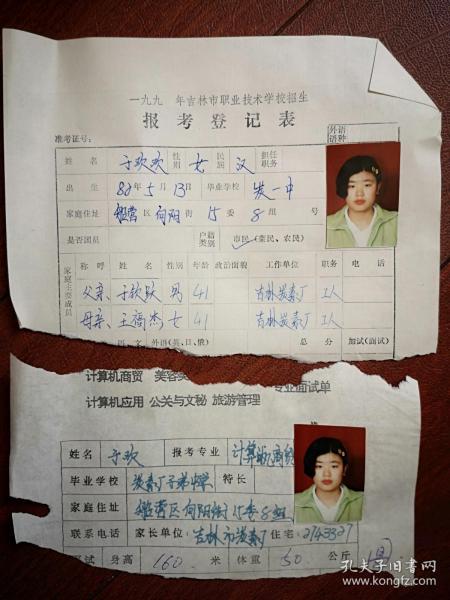 一九九 年吉林市职业技术学校招生
报考登记表
准考证号：
外语语种
姓名 于欢欢 性别 女 民族 汉 担任职务
出生 82年5月13日 毕业学校 炭一中
家庭住址 区 向阳 街 15 委 8 组 号
是否团员 户籍类别 市民（菜民、农民）
家庭主要成员 称呼 姓名 性别 年龄 政治面貌 工作单位 职务 电话
父亲、于 男 41 吉林炭素厂 工人
母亲、王 杰 女 41 吉林炭素厂 工人
语文 外语（英、日、俄） 总分 加试（面试）
计算机商贸 美容美 专业面试单
计算机应用 公关与文秘 旅游管理
姓名 于欢 报考专业 计算机商贸
毕业学校 炭素厂子弟 特长
家庭住址 区向阳街15委8组
联系电话 家长单位：吉林市炭素厂 住宅：2743327
面试 身高 160 米 体重 50 公斤
孔夫子旧书网
www.kongfz.com